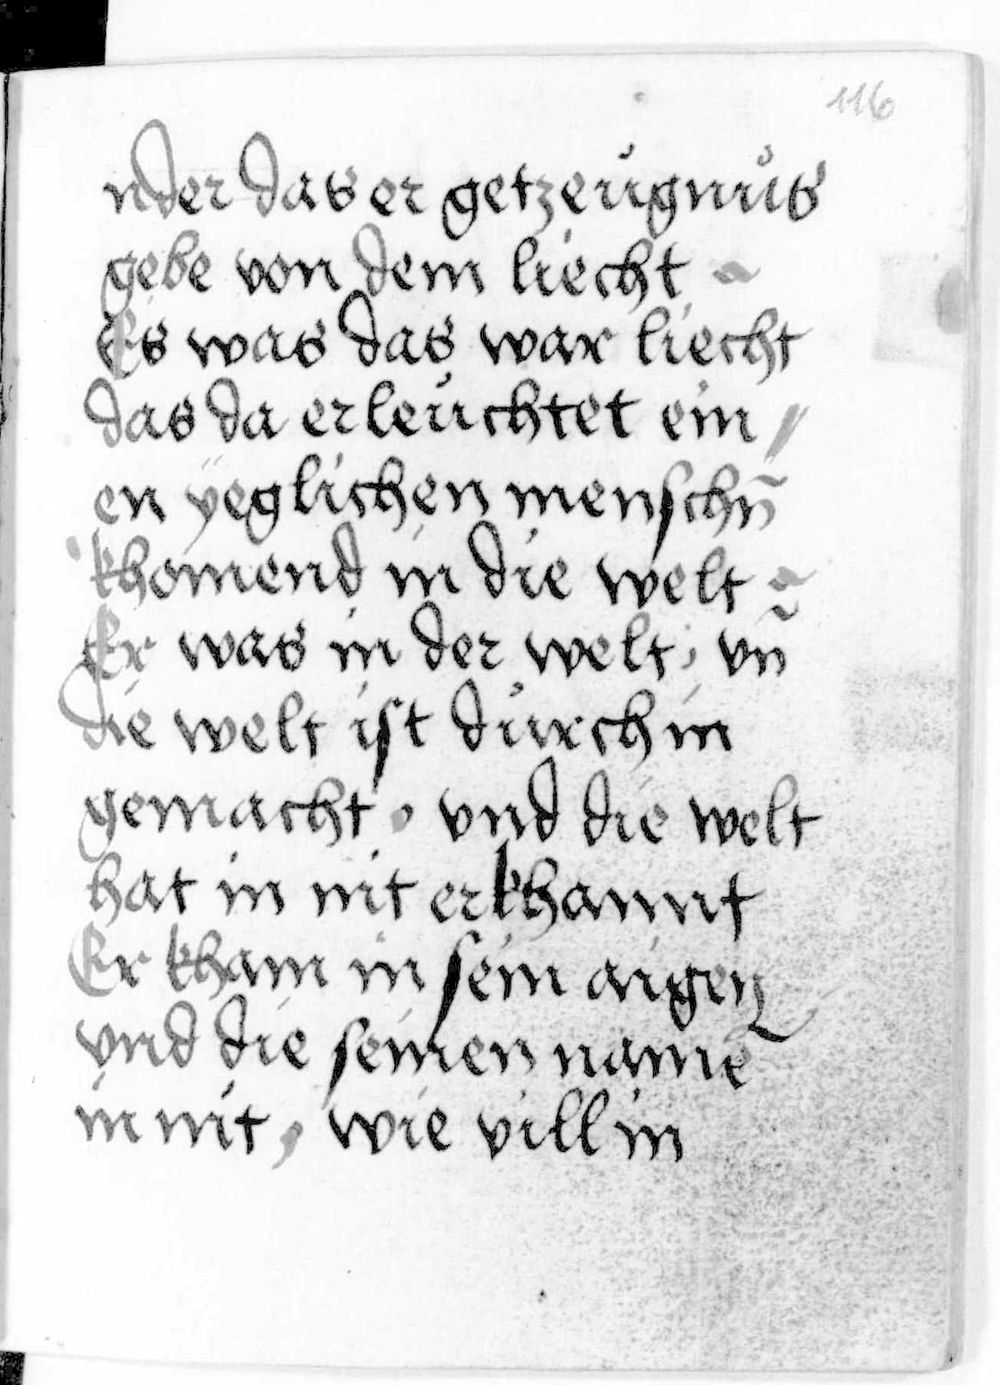 116
nder das er getzeůgnůs
gebe von dem liecht
Es was das war liecht
das da erleůchtet ein //
en ÿeglichen menschn̄
khomend in die welt
Er was in der welt, vn̄
die welt ist důrch in
gemacht, vnd die welt
hat in nit erkhannt
Er kham in sein aigen
vnd die seinen namē
in nit, wie vill in